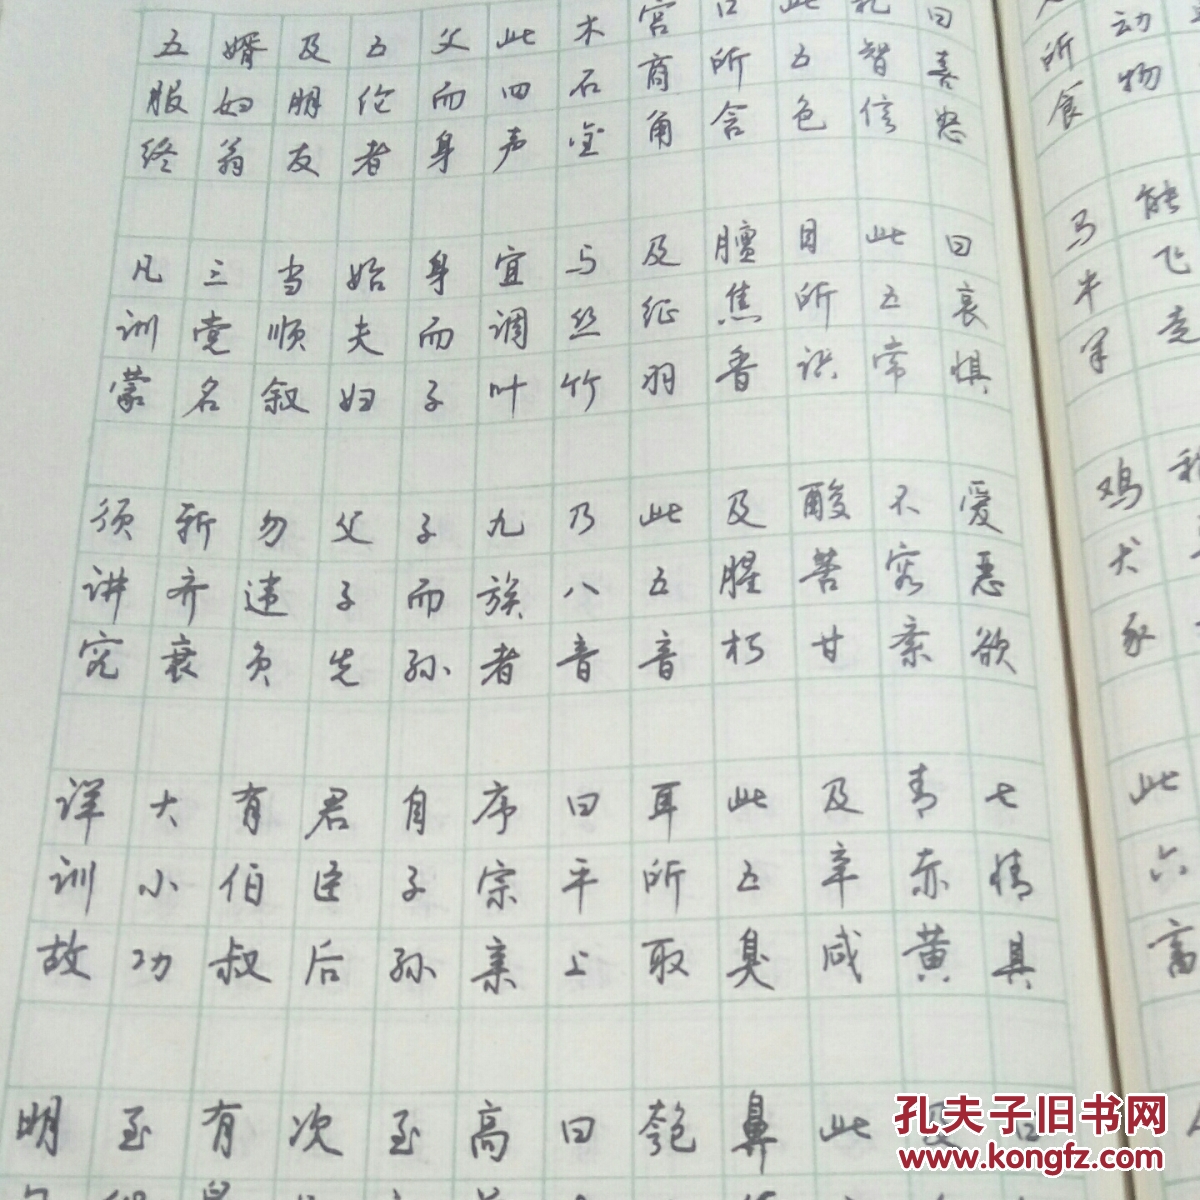 动物 能飞走
人所食 马牛羊 鸡犬豕 此六畜
曰喜怒 曰哀惧 爱恶欲 七情具
礼智信 此五常 不容紊 青赤黄 及
此五色 目所识 酸苦甘 及辛咸 此
口所含 膻焦香 及腥朽 此五臭 鼻
宫商角 及征羽 此五音 耳所取 匏
木石金 与丝竹 乃八音 曰平上 曰
此四声 宜调叶 九族者 序宗亲 高
父而身 身而子 子而孙 自子孙 至
五伦者 始夫妇 父子先 君臣后 次
及朋友 当顺叙 勿违负 有伯叔 有
婿妇翁 三党名 斩齐衰 大小功 至
五服终 凡训蒙 须讲究 详训故 明
孔夫子旧书网
www.kongfz.com